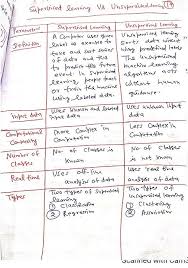 Supervised learning Vs Unsupervised learning
Parameters
Supervised learning
Unsupervised learning
Definition
A Computer uses given
label as examples to
and sort series
of data and thus
to predict future
event. In Supervised
learning, people teach
or train the machine
using labeled data.
Unsupervised learning
data without
any predefined labels
The Unsupervised
machine learning algorithm
acts without
human guidance.
Input data
Uses Known and labeled
input data
Uses unknown input
data
Computational
Complexity
More Complex in
Computation
Less Complex in
Computation
Number of
Classes
No. of Classes is
Known
No. of Classes
is not known
Real time
Uses off-line
analysis of data
Uses real time
analysis of data
Types
Two types of Supervised
learning
① Classification
② Regression
Two types of
Unsupervised learning
① Clustering
② Association
Scanned with Cam